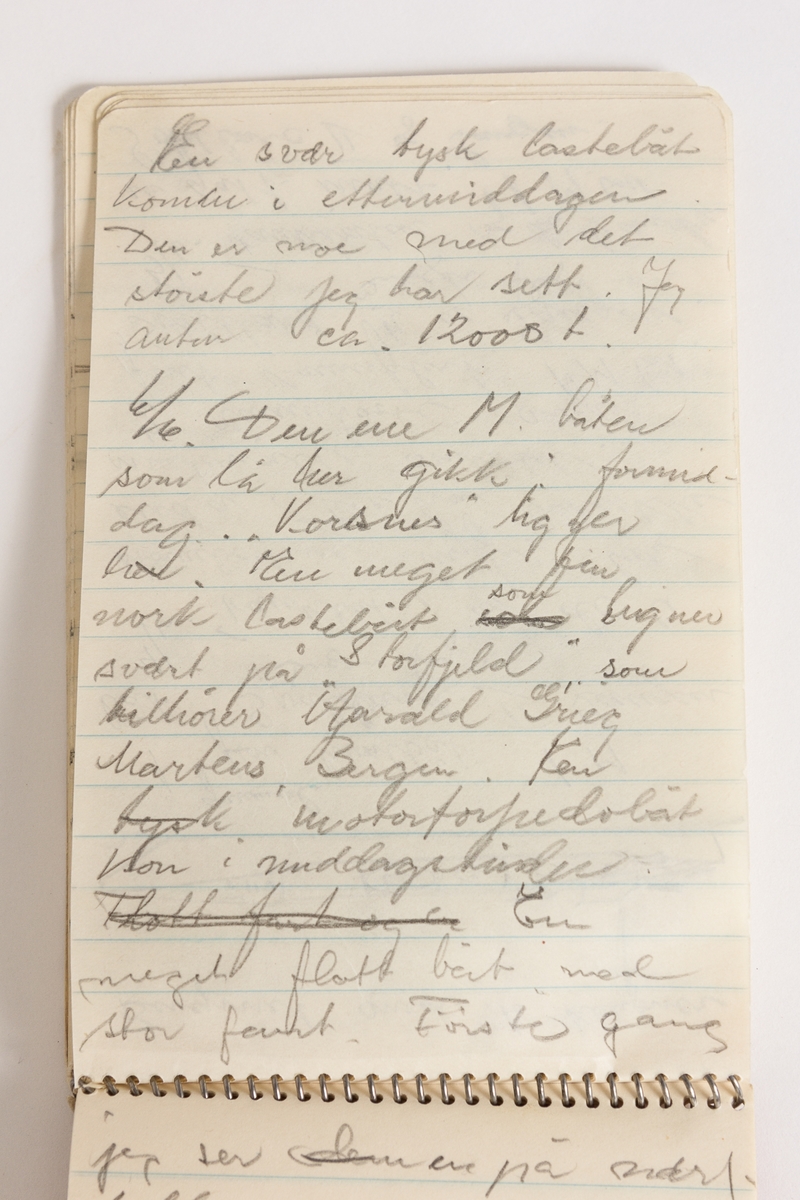 En svær tysk lastebåt
kom i ettermiddagen.
Den er noe med det
störste jeg har sett. Jeg
antar ca. 12000 t.
6/6. Den ene M. båten
som lå her gikk i formid-
dag. "Vorsnes" ligger
her. En meget fin
norsk lastebåt som ligner
svært på "Storfjeld" som
tilhörer Harald Grieg
Martens, Bergen. En
tysk motortorpedobåt
kom i middagstunden.
Flott fart og er En
meget flott båt med
stor fart. Förste gang
jeg ser en på nært